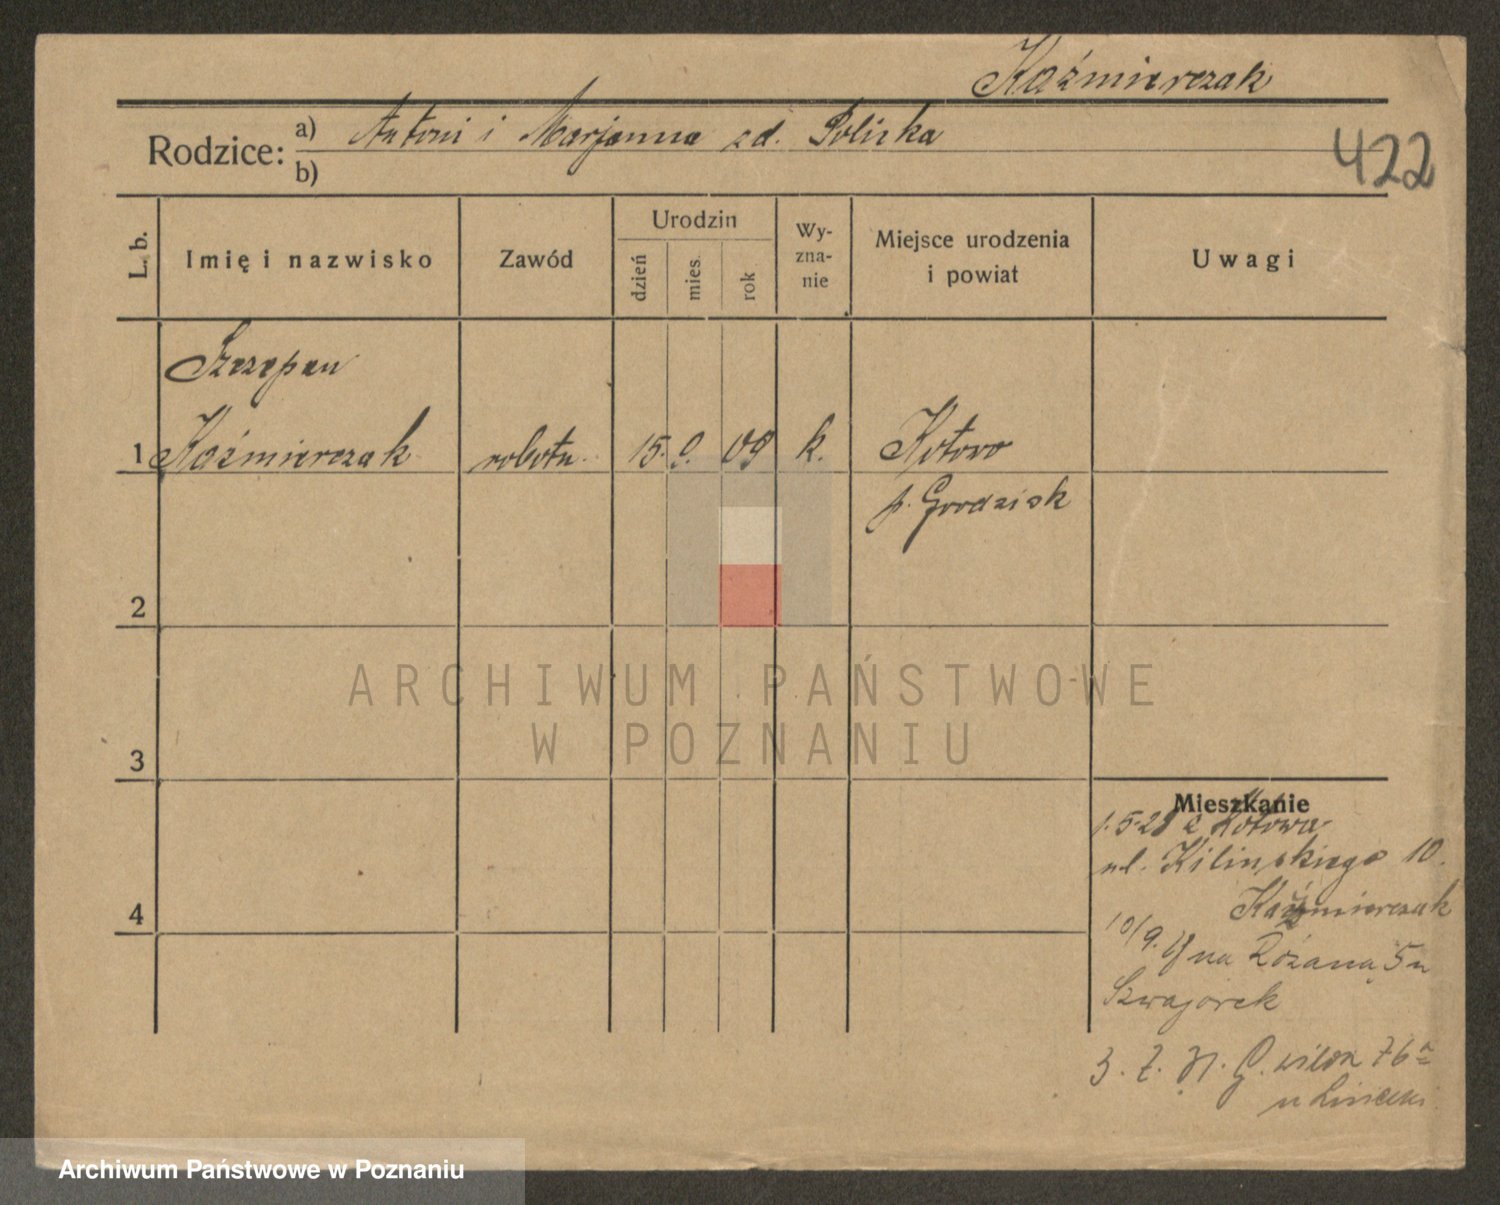 Kaźmierczak
Rodzice: a) Antoni i Marjanna zd. Policka
b)
422
L. b.
Imię i nazwisko
Zawód
Urodzin
dzień
mies.
rok
Wy-
zna-
nie
Miejsce urodzenia
i powiat
Uwagi
Szczepan
1 Kaźmierczak robotn. 15. 09 k. Kotowo
p. Grodzisk
2
3
4
ARCHIWUM PAŃSTWOWE
W POZNANIU
Mieszkanie
z Kotowa
ul. Kilińskiego 10.
Kaźmierczak
10/9. na Różaną 5 u
Szwajorek
3. 7. 31. G. wilda 76
u
Archiwum Państwowe w Poznaniu